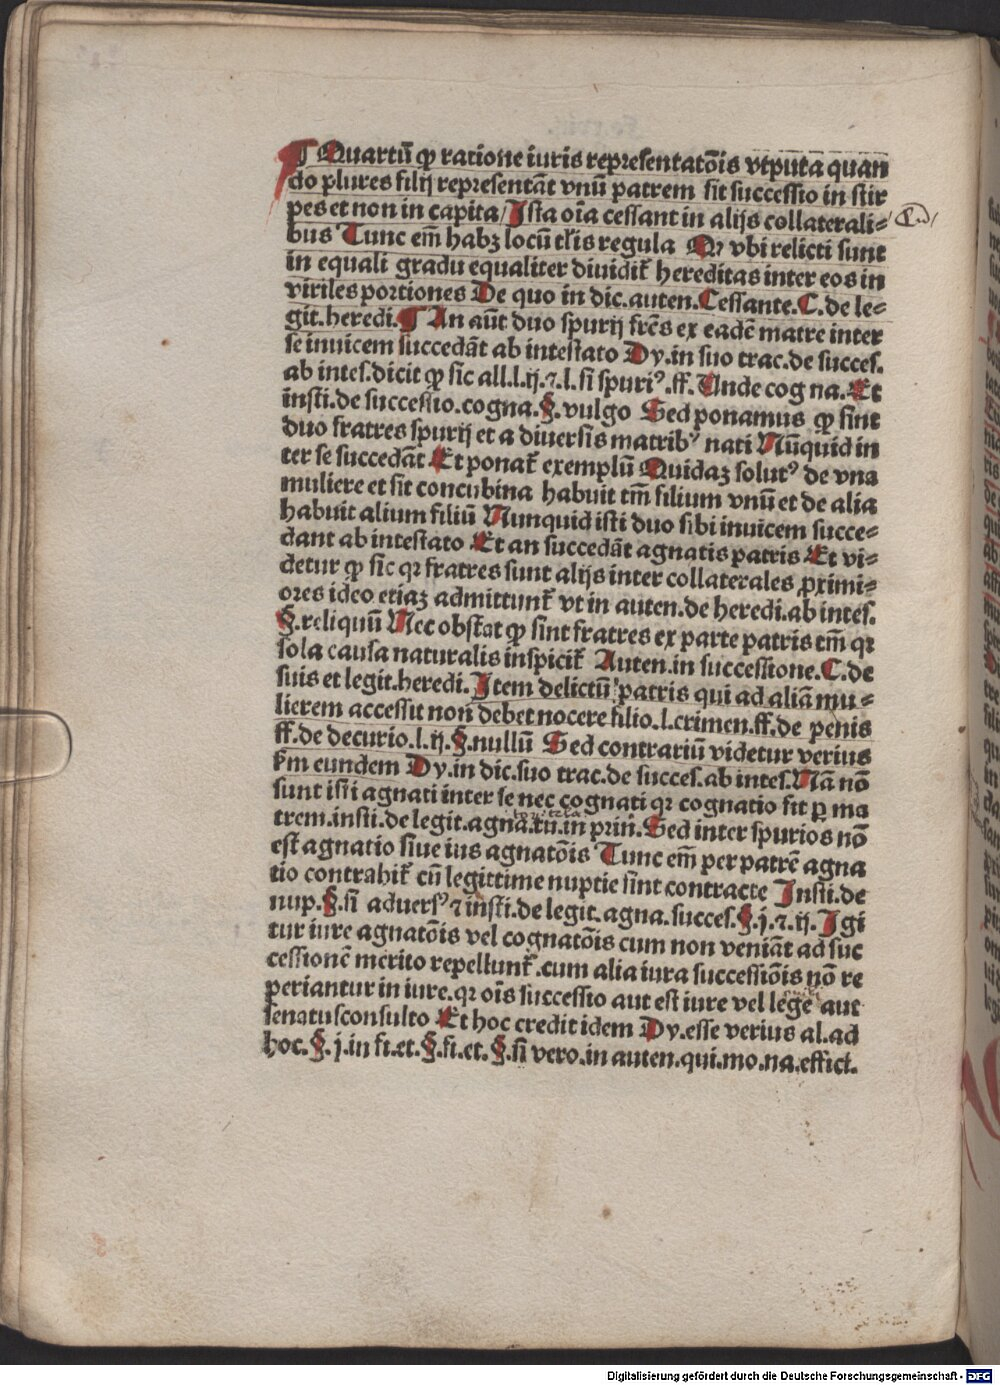 ¶ Quartū ꝙ ratione iuris representatōis vtputa quan
do plures filij representāt vnū patrem fit successio in stir
pes et non in capita/ Ista oīa cessant in alijs collaterali⸗
bus Tunc em̄ habꝫ locū tl̄is regula Qꝛ vbi relicti sunt
in equali gradu equaliter diuidit̄ hereditas inter eos in
viriles portiones De quo in dic.auten.Cessante.C.de le⸗
git.heredi.¶ An aūt duo spurij frēs ex eadē matre inter
se inuicem succedāt ab intestato Dy.in suo trac.de succes.
ab intes.dicit ꝙ sic all.l.ij.⁊.l.si spuriꝰ.ff.Unde cog na.Et
insti.de successio.cogna.§.vulgo Sed ponamus ꝙ sint
duo fratres spurij et a diuersis matribꝰ nati Nūquid in
ter se succedāt Et ponat̄ exemplū Quidaꝫ solutꝰ de vna
muliere et sit concubina habuit tm̄ filium vnū et de alia
habuit alium filiū Nunquid isti duo sibi inuicem succe⸗
dant ab intestato Et an succedāt agnatis patris Et vi⸗
detur ꝙ sic qꝛ fratres sunt alijs inter collaterales ꝓximi⸗
ores ideo etiaꝫ admittunt̄ vt in auten.de heredi.ab intes.
§.reliquū Nec obstat ꝙ sint fratres ex parte patris tm̄ qꝛ
sola causa naturalis inspicit̄ Auten.in successione.C.de
suis et legit.heredi.Item delictū patris qui ad aliā mu⸗
lierem accessit non debet nocere filio.l.crimen.ff.de penis
ff.de decurio.l.ij.§.nullū Sed contrariū videtur verius
ẜm eundem Dy.in dic.suo trac.de succes.ab intes.Nā nō
sunt isti agnati inter se nec cognati qꝛ cognatio fit ꝑ ma
trem.insti.de legit.agna.tu.in prin̄.Sed inter spurios nō
est agnatio siue ius agnatōis Tunc em̄ per patrē agna
tio contrahit̄ cū legittime nuptie sint contracte Insti.de
nup.§.si aduersꝰ ⁊ insti.de legit.agna.succes.§.j.⁊.ij.Igi
tur iure agnatōis vel cognatōis cum non veniāt ad suc
cessionē merito repellunt̄.cum alia iura successiōis nō re
periantur in iure.qꝛ oīs successio aut est iure vel lege aut
senatusconsulto Et hoc credit idem Dy.esse verius al.ad
hoc.§.j.in fi.et.§.fi.et.§.si vero.in auten.qui.mo.na.effict.
Digitalisierung gefördert durch die Deutsche Forschungsgemeinschaft - DFG